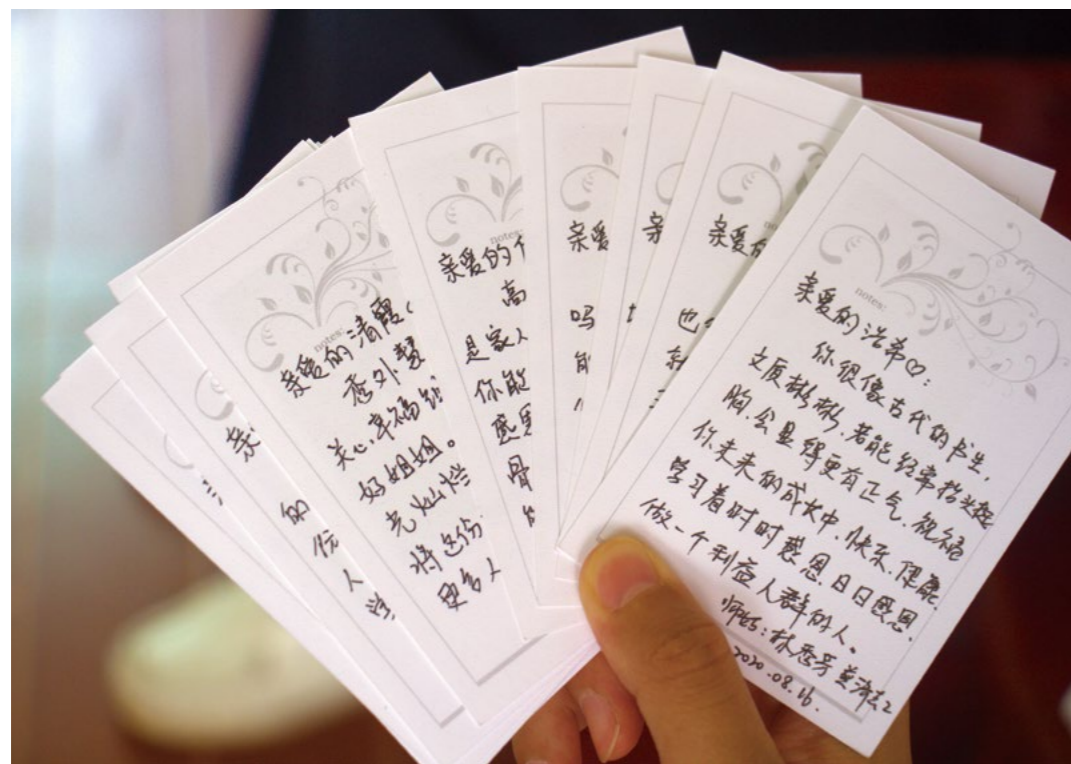 notes:
亲爱的清霞
秀外慧
关心.幸福的
好姐姐。
光灿烂
将这份
更多人
亲
的
份
人
notes:
亲爱的
高
是家人
你能
感恩
骨
亲爱
吗
能
亲
亲爱
也
转
notes:
亲爱的浩希♡:
你很像古代的书生,
文质彬彬,若能经常抬头挺
胸.会显得更有正气.祝福
你未来的成长中.快乐.健康.
学习着时时慈恩.日日感恩.
做一个利益人群的人。
师姑:林
2020.08.16.